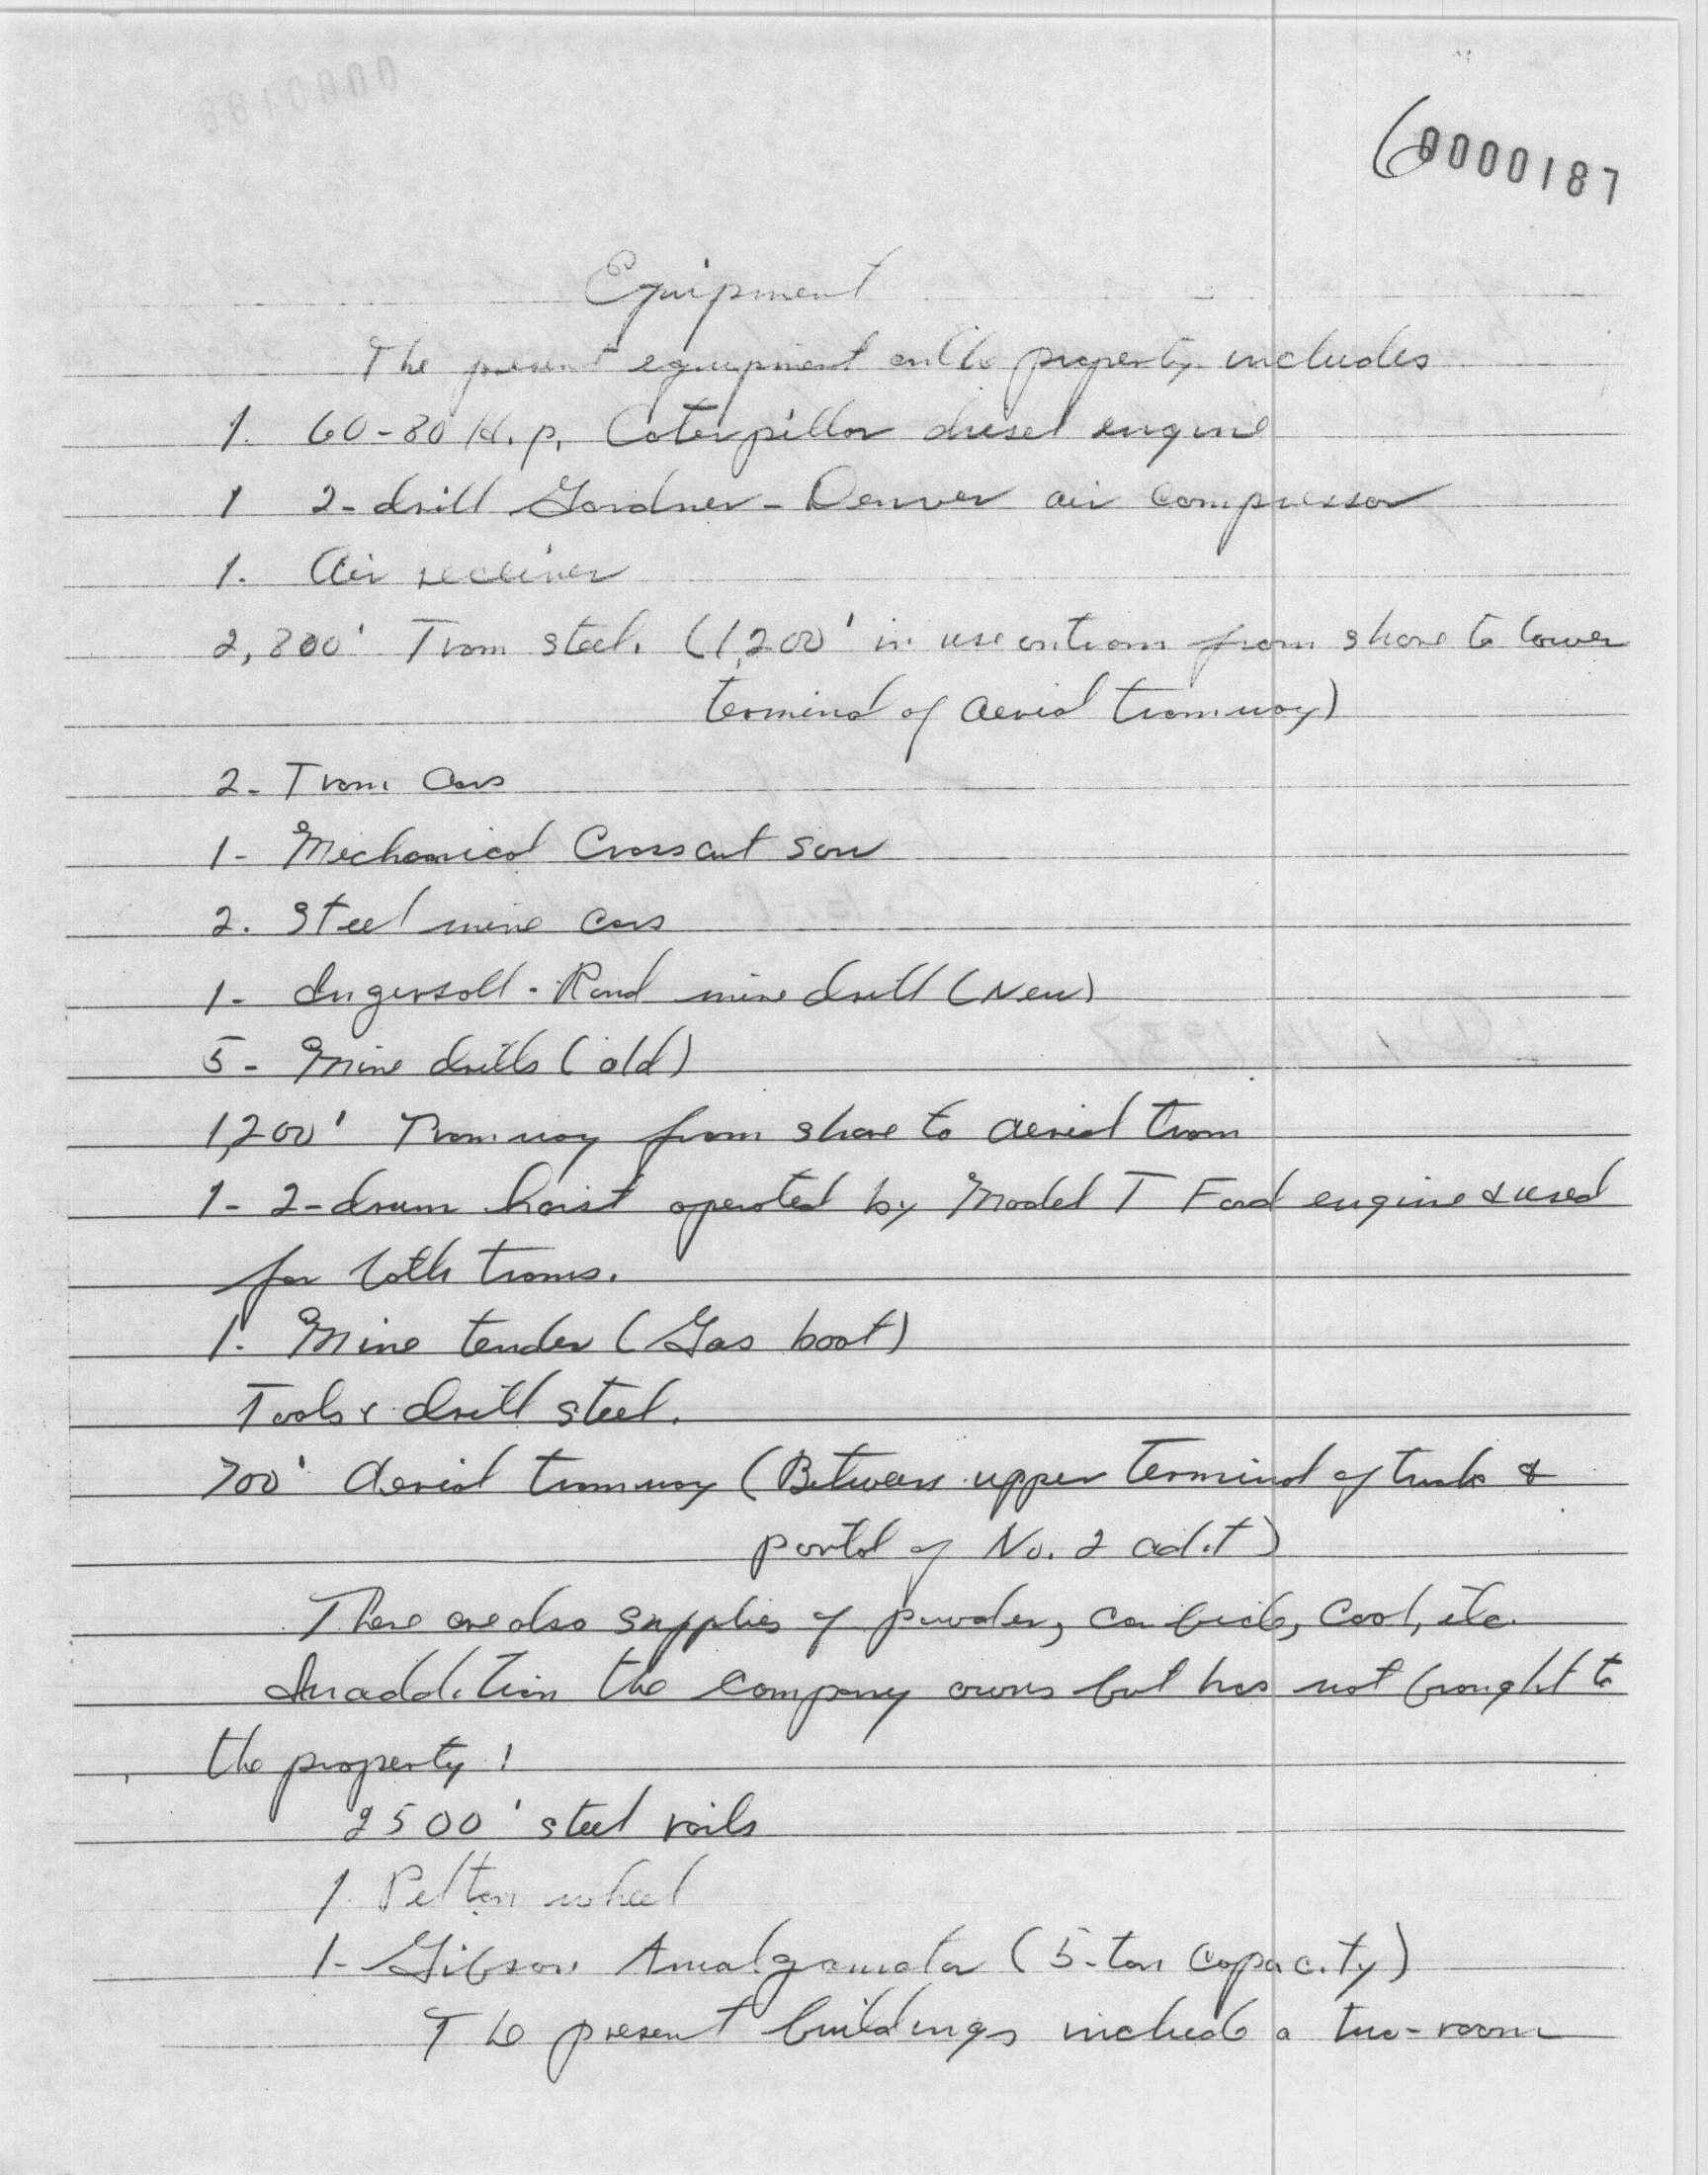 6
0000187
Equipment
The present equipment on the property includes
1. 60-80 H.p. Caterpillar diesel engine
1 2-drill Gardner-Denver air compressor
1. Air receiver
2,800' Tram steel. (1,200' in use on tram from shore to lower
terminal of aerial tramway)
2- Tram Cars
1- Mechanical Crosscut saw
2. Steel mine cars
1- Ingersoll-Rand mine drill (New)
5- Mine drills (old)
1,200' Tramway from shore to aerial tram
1- 2-drum hoist operated by Model T Ford engine & used
for both trams.
1. Mine tender (Gas boat)
Tools & drill steel.
700' Aerial tramway (Between upper terminal of &
portal of No. 2 adit)
There are also supplies of powder, carbide, coal, etc.
In addition the company owns but has not brought to
the property:
2500' steel rails
1. Pelton wheel
1- Gibson Amalgamator (5-ton capacity)
The present buildings include a two-room